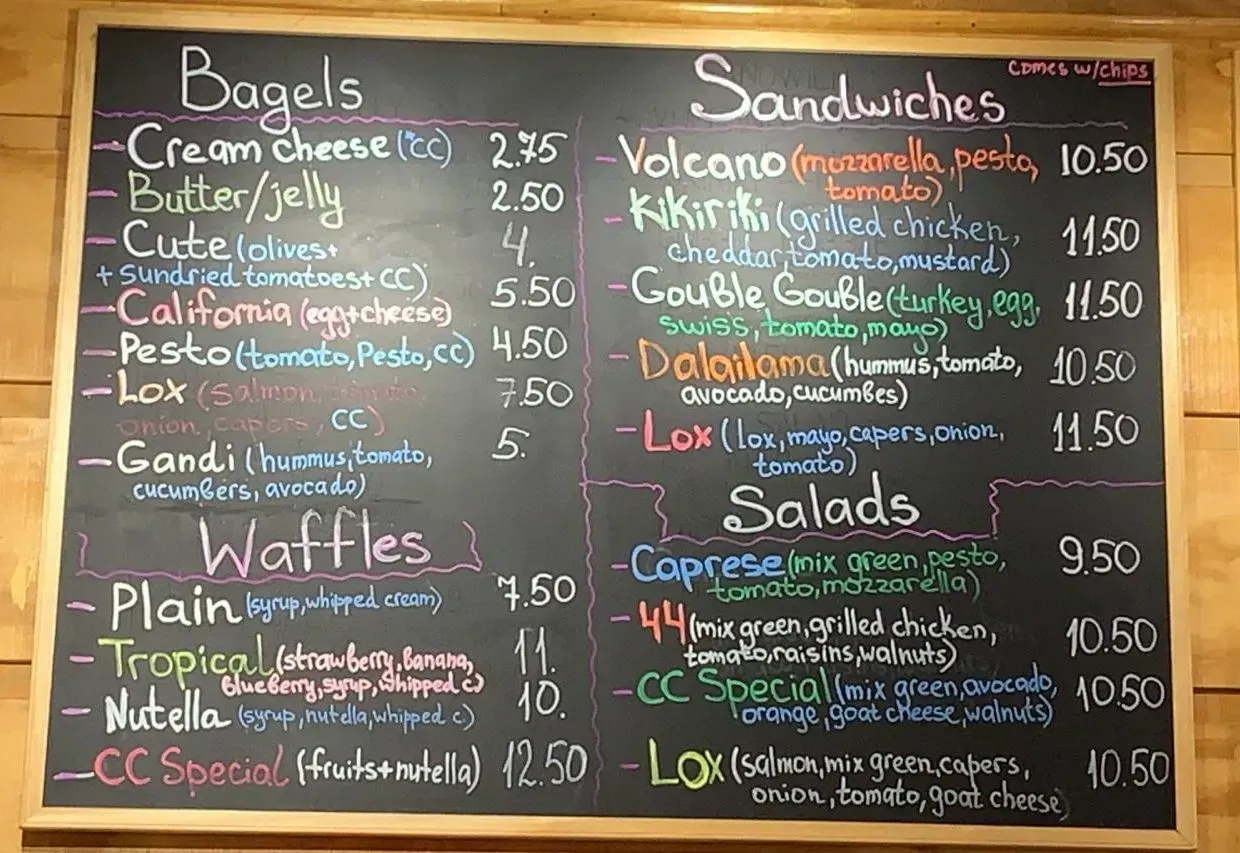 Bagels
- Cream cheese (*CC) 2.75
- Butter/jelly 2.50
- Cute (olives+ 4.
+ sundried tomatoes + CC)
- California (egg+cheese) 5.50
- Pesto (tomato, Pesto, CC) 4.50
- Lox (Salmon, tomato, 7.50
onion, capers, CC)
- Gandi (hummus, tomato, 5.
cucumbers, avocado)
Waffles
- Plain (syrup, whipped cream) 7.50
- Tropical (strawberry, Banana, 11.
Blueberry, syrup, whipped c)
- Nutella (syrup, nutella, whipped c.) 10.
- CC Special (fruits+nutella) 12.50
Comes w/chips
Sandwiches
- Volcano (mozzarella, pesto, 10.50
tomato)
- Kikiriki (grilled chicken, 11.50
cheddar, tomato, mustard)
- Gouble Gouble (turkey, egg, 11.50
swiss, tomato, mayo)
- Dalailama (hummus, tomato, 10.50
avocado, cucumbes)
- Lox (lox, mayo, capers, onion, 11.50
tomato)
Salads
- Caprese (mix green, pesto, 9.50
tomato, mozzarella)
- 44 (mix green, grilled chicken, 10.50
tomato, raisins, walnuts)
- CC Special (mix green, avocado, 10.50
orange, goat cheese, walnuts)
- Lox (salmon, mix green, capers, 10.50
onion, tomato, goat cheese)